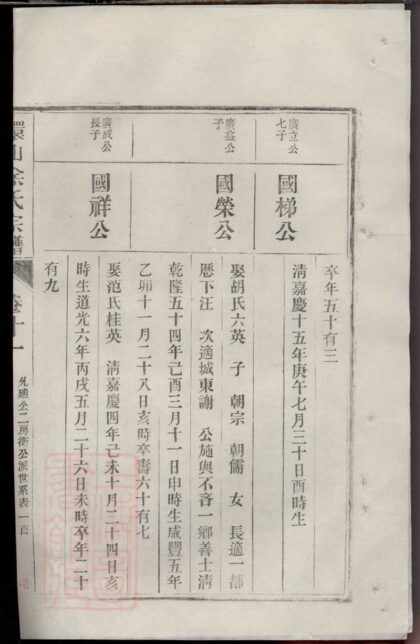 卒年五十有三
廣立公七子
國梯公
清嘉慶十五年庚午七月三十日酉時生
廣益公子
國榮公
娶胡氏六英 子 朝宗 朝儒 女 長適一都
厯下汪 次適城東謝 公施與不吝一鄉善士清
乾隆五十四年己酉三月十一日申時生咸豐五年
乙卯十一月二十八日亥時卒壽六十有七
廣成公長子
國祥公
娶范氏桂英 清嘉慶四年己未十月二十四日亥
時生道光六年丙戌五月二十六日未時卒年二十
有九
環山余氏宗譜
卷十一
公二房衛公派世系表一百